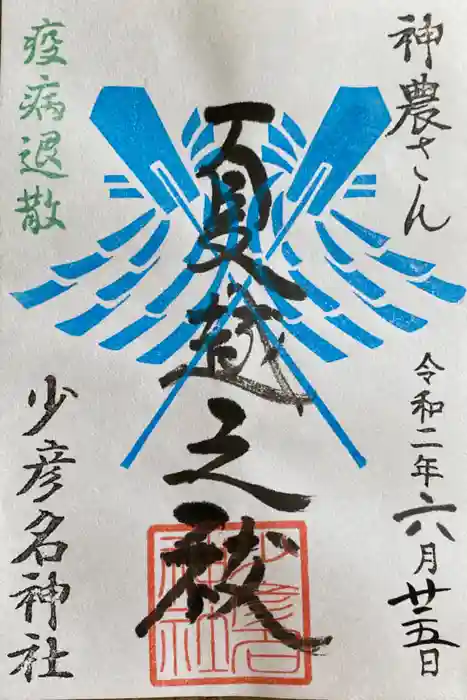 神農さん
令和二年六月廿五日
夏越之祓
疫病退散
少彦名神社
少彦名
神社